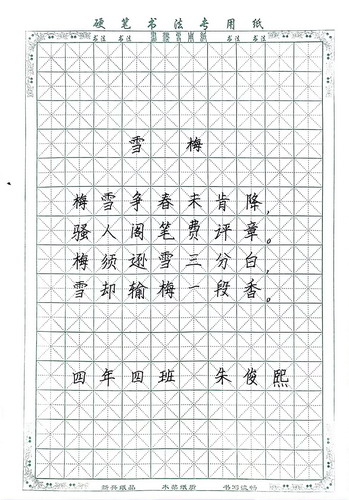 硬笔书法专用纸
书法 书法 书法 书法
雪 梅
梅雪争春未肯降，
骚人阁笔费评章。
梅须逊雪三分白，
雪却输梅一段香。
四年四班 朱俊熙